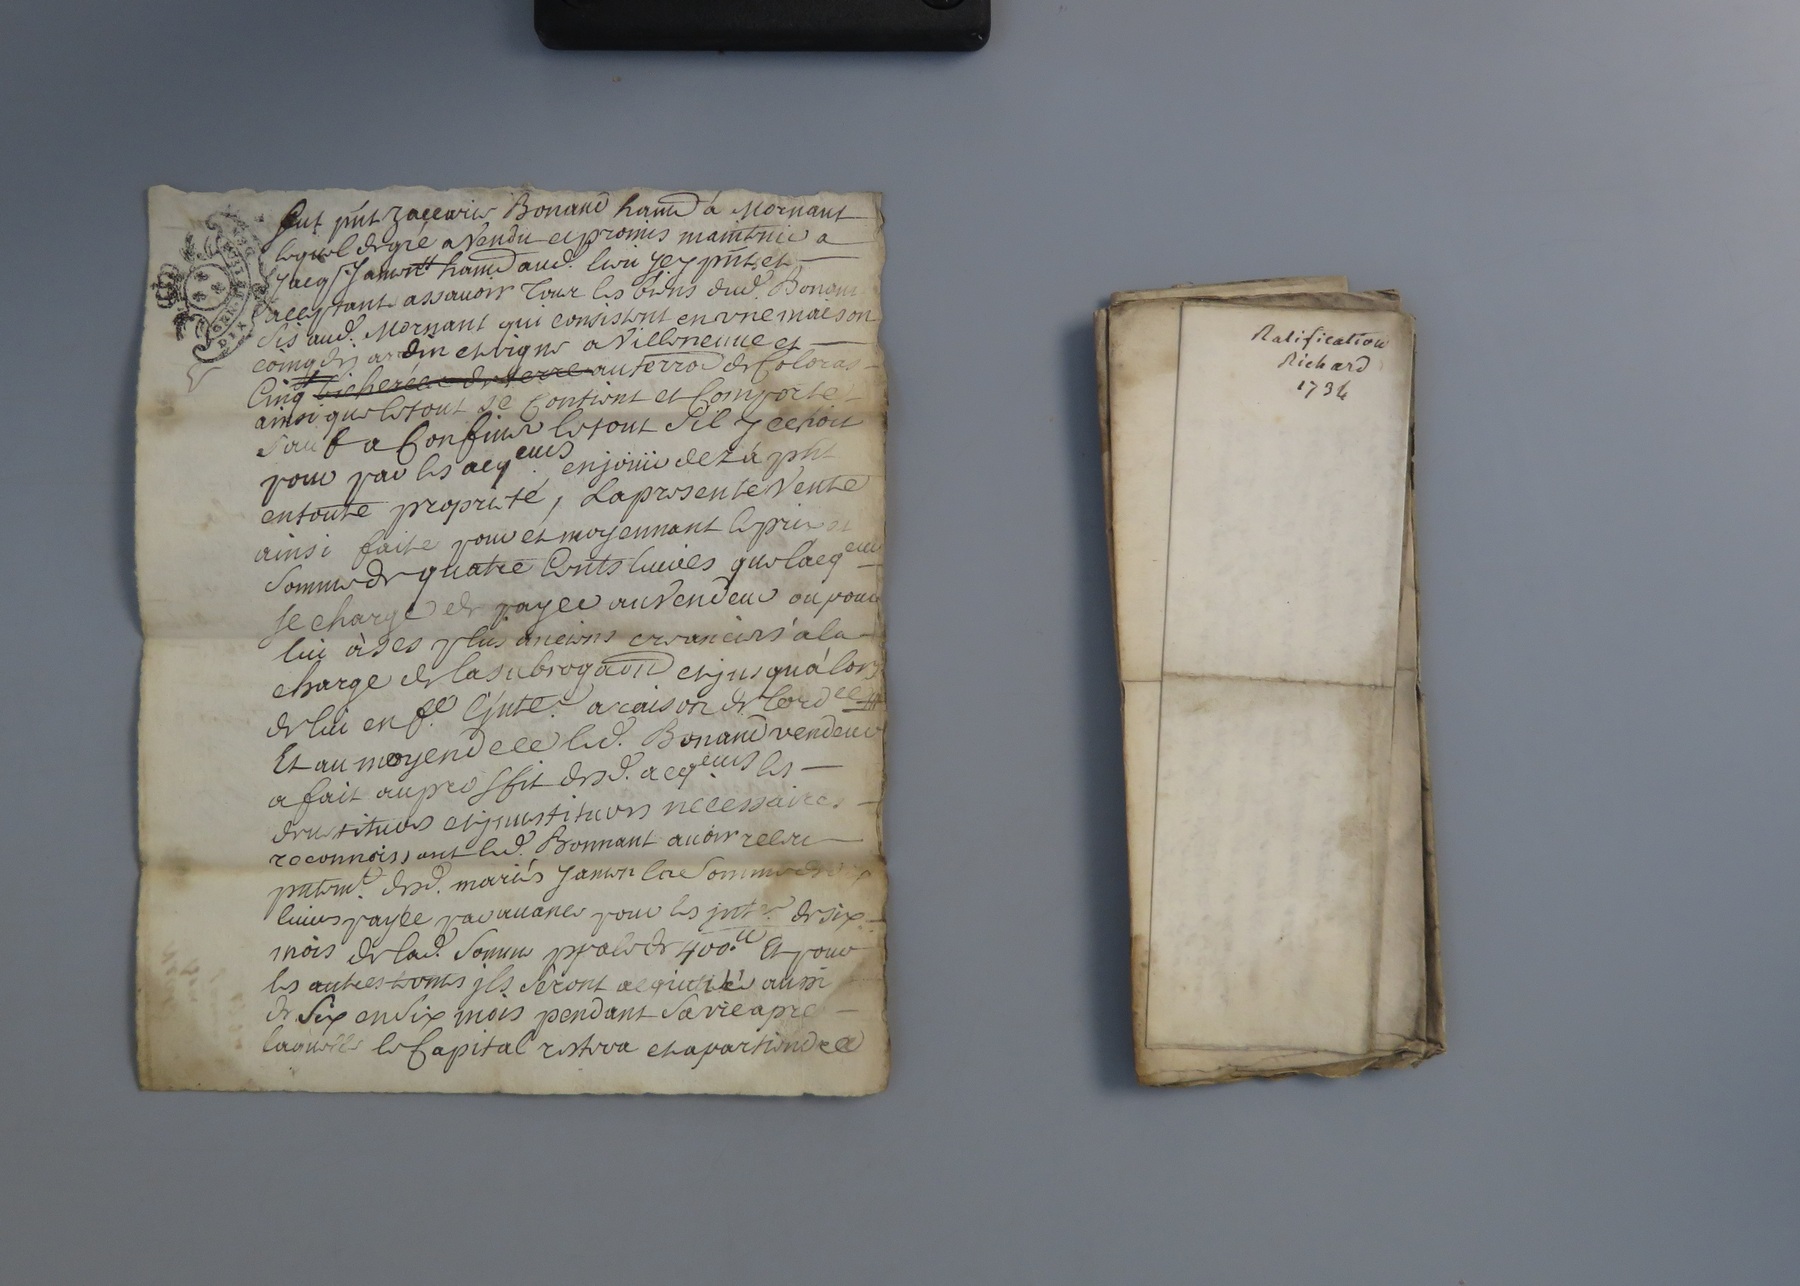 Fut pnt Zaccarie Bonand habitt a Mornant
lequel de gré a vendu et promis maintenir a
Jacq Janvn habitt aud. lieu jcy pnt et
acceptant assavoir tour les biens dud. Bonan
sis aud. Mornant qui consistent en vne maison
jardin et vigne a Villeneuue et
Cinq bicherées de terre au terroi de Coloras
ainsi que le tout se Contient et Comporte
sauf a Confiner le tout s'il y echoit
pour par les acqeurs en jouir dez a pnt
en toute propriete, La presente Vente
ainsi faite pour et moyennant le prix et
Somme de quatre Cents liures que lacqeur
se charge de payer au Vendeur ou pour
lui à ses plus anciens creanciers a la
charge de la subrogaon et jusqu'a lors
de lui en fe l'jnte. a raison de lord
Et au moyen de ce led. Bonand vendeur
a fait au proffit desd. acqeurs les
devestitures et jnvestitures necessaires
reconnoissant led. Bonnant auoir receu
pntemt. desd. mariés Janvn la Somme de
liures payée par auance pour les jnte. de six
mois de lad. Somme pple de 400ll Et pour
les autres jls seront acquittés aussi
de Six en Six mois pendant sa vie apre
laquelle le Capital restera et apartiendra
GEN
DIX
Ratification
Richard
1734